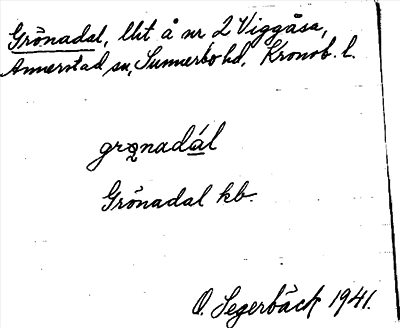 Grönadal, lht å nr 2 Viggåsa,
Annerstad sn, Sunnerbo hd, Kronob. l.
grønadál
Grönadal kb.
O. Segerbäck 1941.